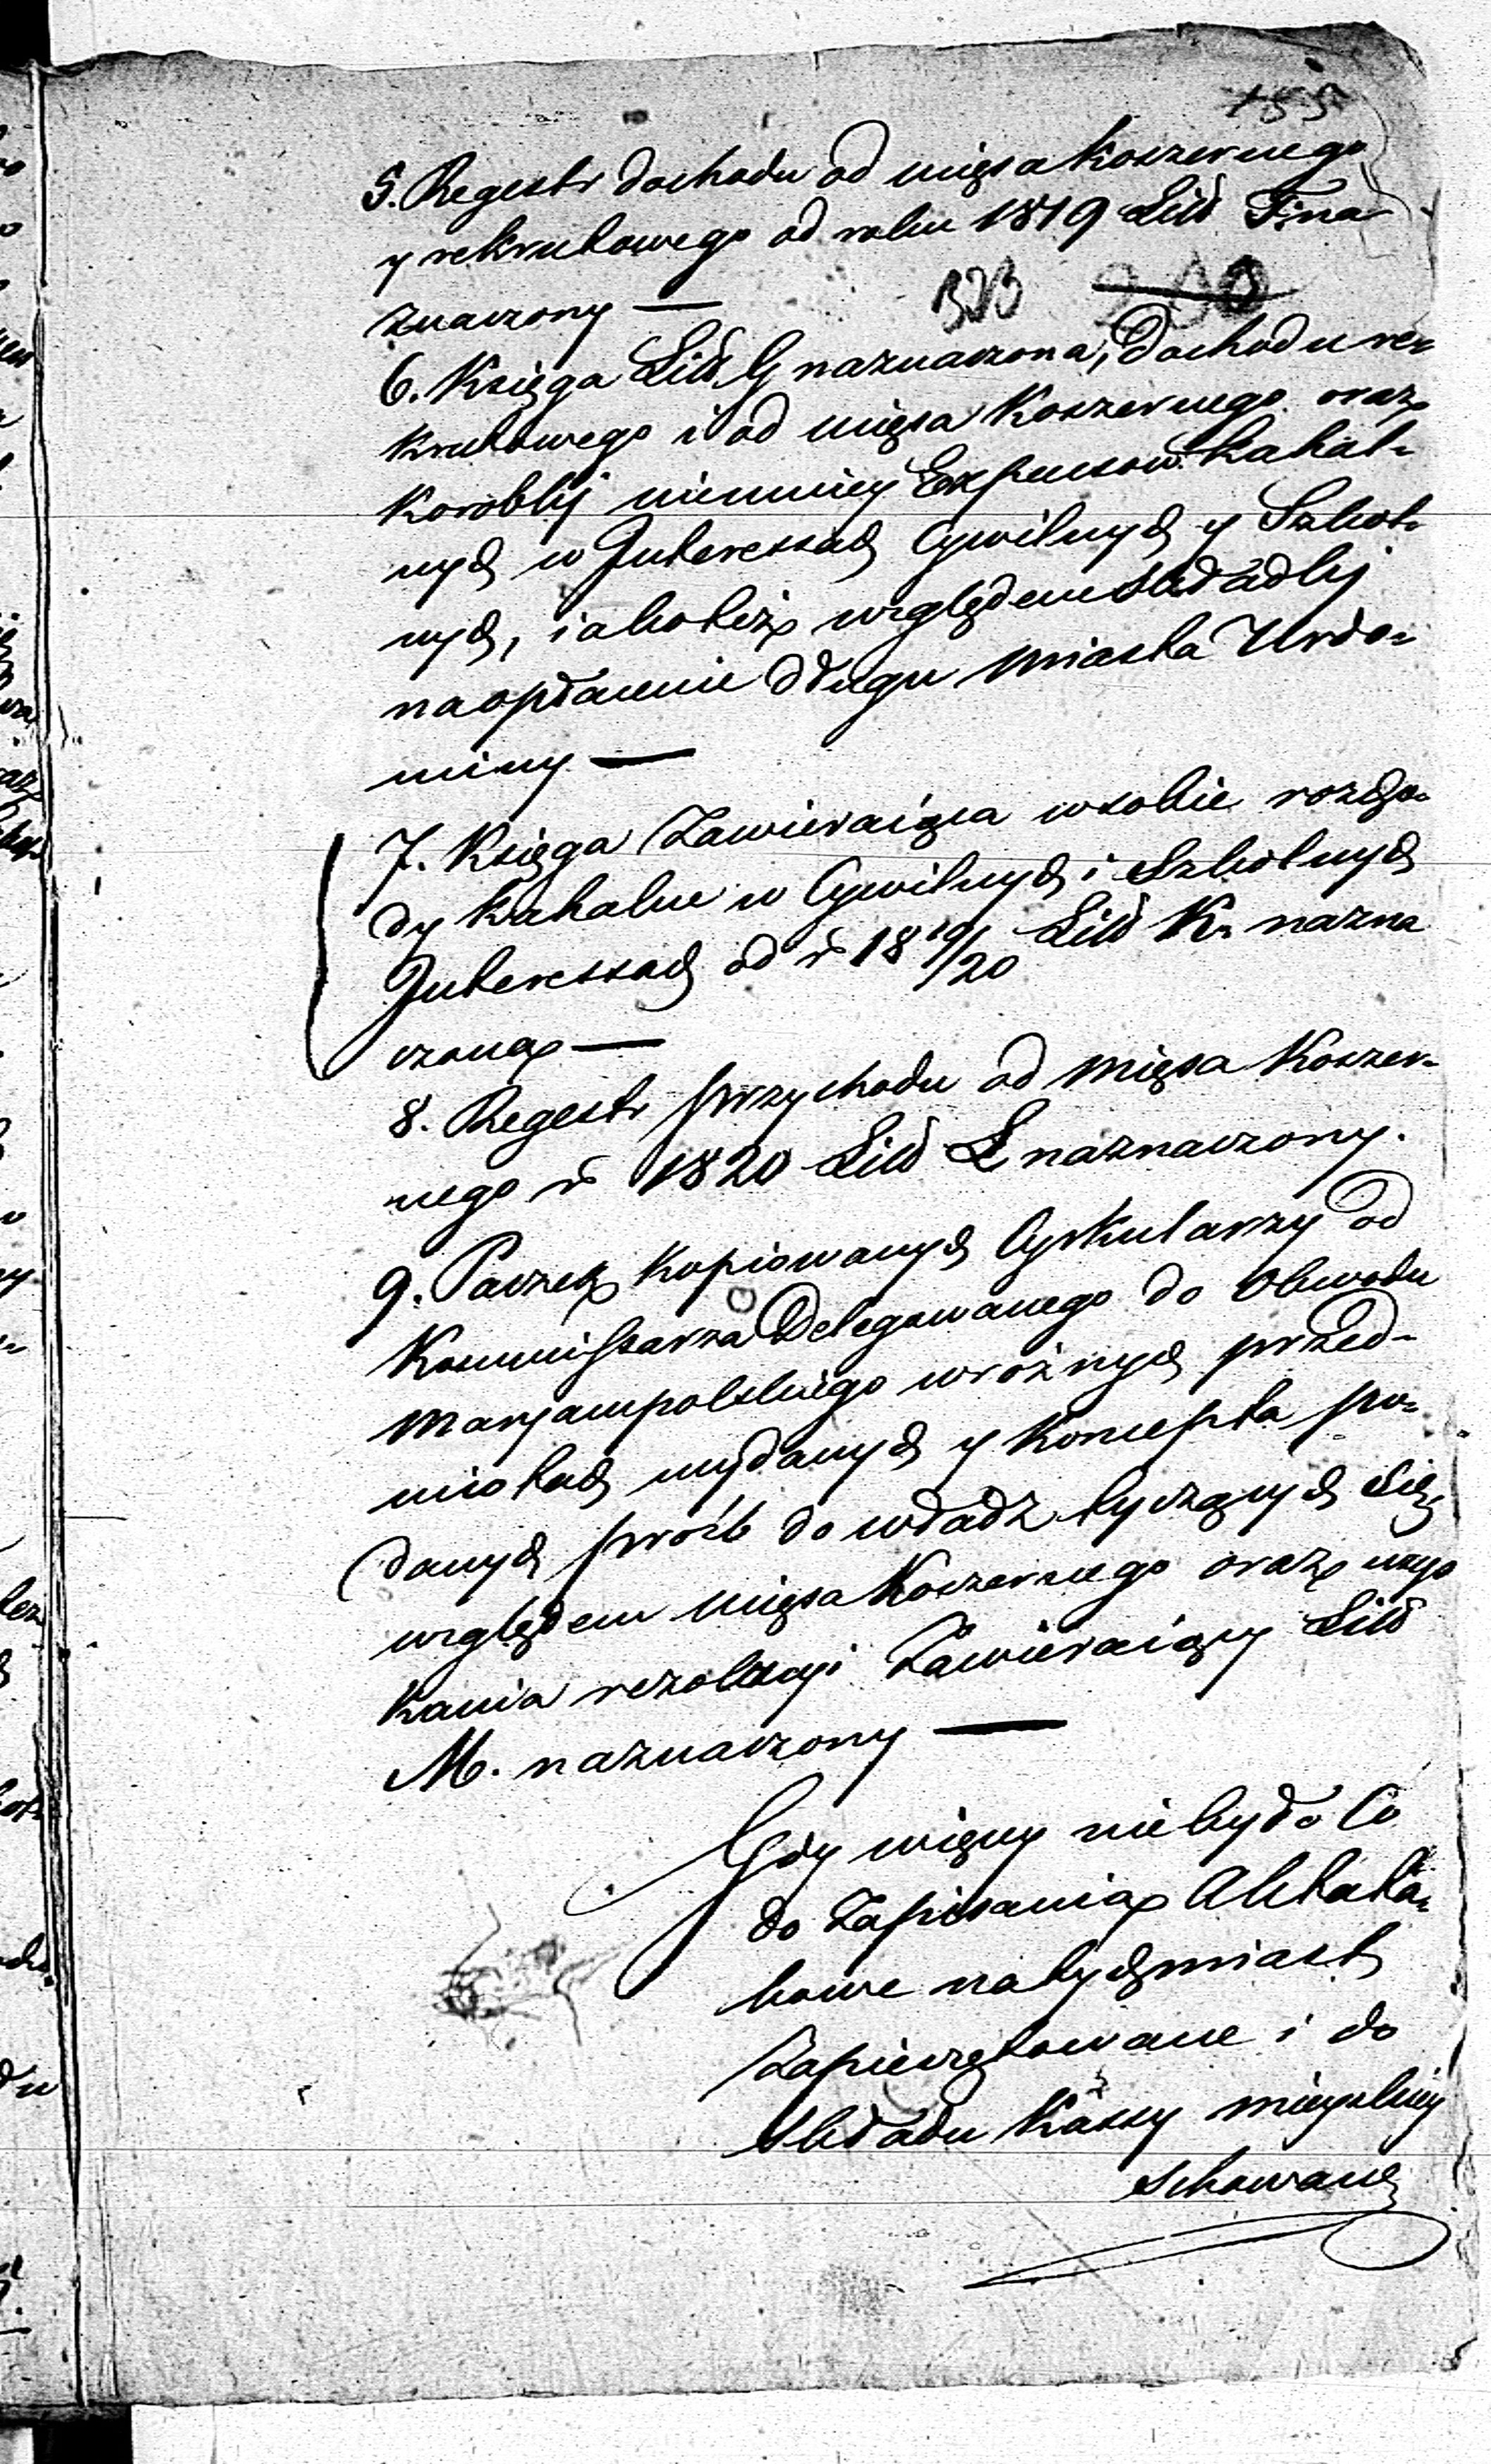 155
5. Regestr dochodu od mięsa Koszernego
y rekrutowego od roku 1819 Litt F: na
znaczony —
323 200
6. Księga Litt G naznaczona, Dochodu re=
krutowego i od mięsa Koszernego oraz
Korobki niemniey Expensow Kahal=
nych w Interessach Cywilnych y Szkol=
nych, iakoteż względem składki
na opłacenie długu Miasta Urdo=
miny —
7. Księga Zawieraiąca w sobie rozcho=
dy kahalne w Cywilnych i Szkolnych
Interessach od r 18 19/20 Litt K. nazna
czona —
8. Regestr przychodu od Mięsa Koszer=
nego r 1820 Litt L naznaczony.
9. Paczek kopiowanych Cyrkularzy od
Kommissarza Delegowanego do Obwodu
Maryampolskiego w różnych przed=
miotach wydanych y Koncepta po=
danych prośb do władz tyczących się
względem mięsa Koszernego oraz uzys
kania rezolucyi Zawieraiący Litt
M. naznaczony —
Gdy więcy nie było Co
do Zapisania Akta ta=
kowe natychmiast
Zapieczętowane i do
składu Kassy mieyskiey
schowane